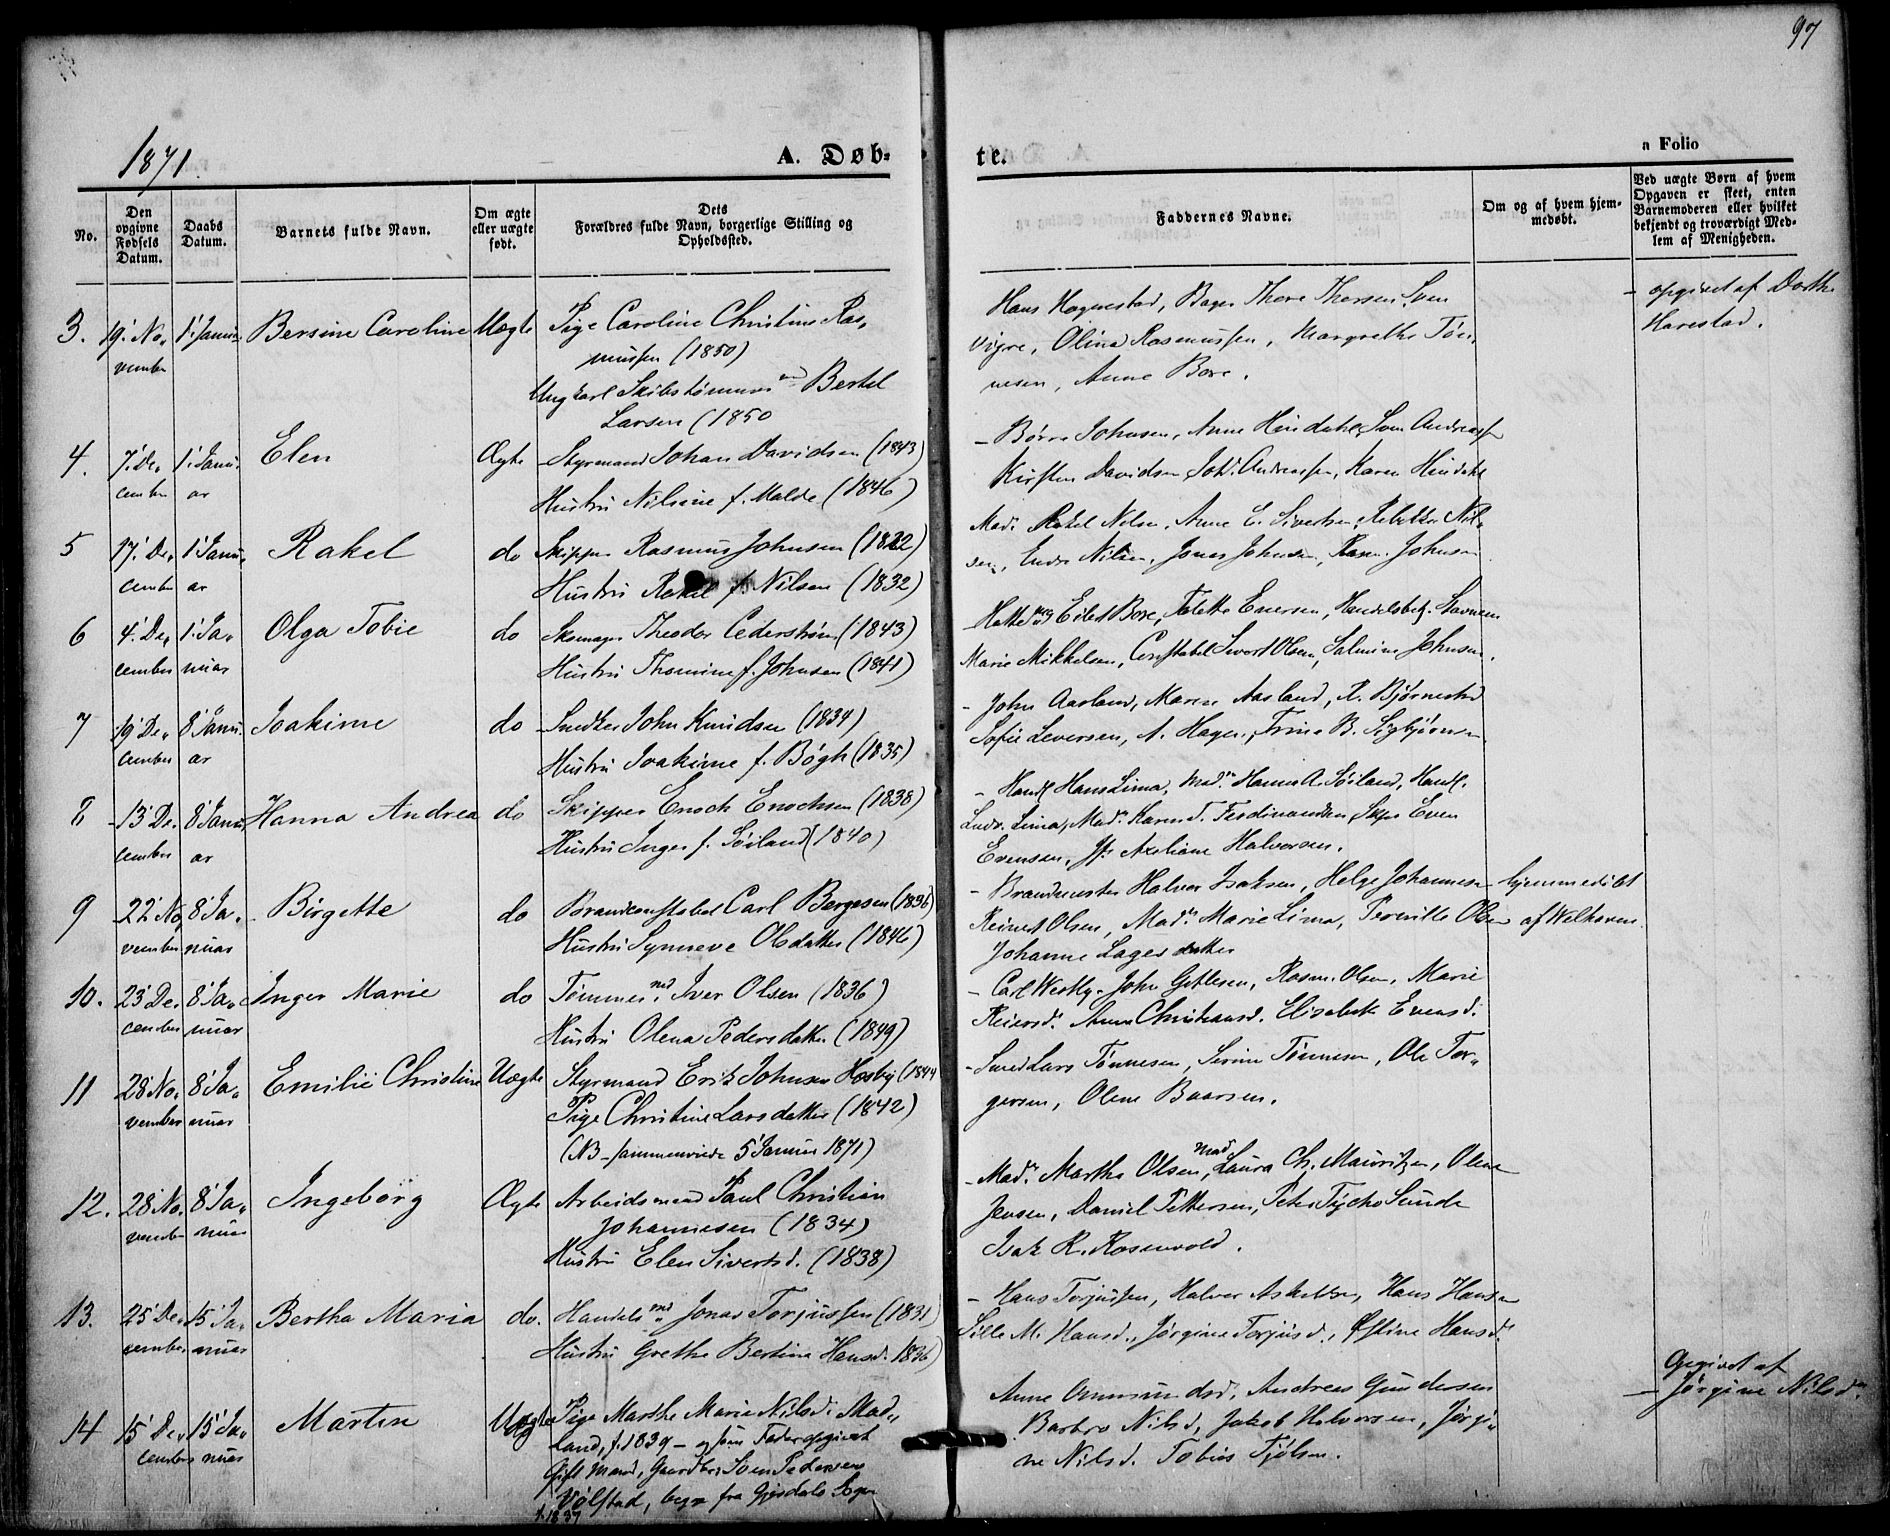 97
1871.
A. Døb-
te.
a Folio
No.
Den opgivne Fødsels Datum.
Daabs Datum.
Barnets fulde Navn.
Om ægte eller uægte født.
Dets Forældres fulde Navn, borgerlige Stilling og Opholdssted.
Faddernes Navne.
Om og af hvem hjemmedøbt.
Ved uægte Børn af hvem Opgaven er skeet, enten Barnemoderen eller hvilket bekjendt og troværdigt Medlem af Menigheden.
3. 19' No- 1' Januar Bersine Caroline Uægte Pige Caroline Christine Ras-
vember mussen (1850)
Ungkarl Skibstømmermd Bertel
Larsen (1850
Hans Hognestad, Bager Thore Thorsen, Sven
Vigre, Olina Rasmussen, Margrethe Tøn-
nesen, Anne Bore.
- opgivet af Dorthe
Harestad.
4. 7' De- 1' Janu- Elen Ægte Styrmand Johan Davidsen (1843)
cember ar Hustru Nilsine f. Malde (1846)
- Børre Johnsen, Anne Hindahl, Sven Andreass
Kirsten Davidsen, Joh. Andreassen, Karen Hindahl
5 17' De- 1' Janu- Rakel do Skipper Rasmus Johnsen (1822)
cember ar Hustru Rakel f. Nilsen (1832)
Mad. Rakel Nilsen, Anne E. Sivertsen, Rebekka Nil-
sen, Endre Nilsen, Jonas Johnsen, Rasm. Johnsen
6 4' De- 1' Ja- Olga Tobie do Skomager Theodor Cederstrøm (1843)
cember nuar Hustru Thomine f. Johnsen (1841)
Hattemag Eilert Bore, Talette Evensen, Handelsbetj.
Marie Mikkelsen, Constabel Sivert Olsen, Salmine Johnsen.
7 19' De- 8' Janu- Joakime do Snedker John Knudsen (1834)
cember ar Hustru Joakime f. Bøgh (1835)
- John Aarland, Maren Aasland, R. Bjørnestad
Sofie Seversen, A. Hagen, Trine B. Sigbjørnsen
8 13' De- 8' Janu- Hanna Andrea do Skipper Enoch Enochsen (1838)
cember ar Hustru Inger f. Søiland (1840)
- Handl Hans Lima, Madm Hanna A. Søiland, Handl.
Ludv. Lima, Madm Karen T. Ferdinandsen, Skpr Even
Evensen, Jfr Axeliane Halvorsen.
9 22' No- 8' Ja- Birgette do Brandconstabel Carl Børgesen (1836)
vember nuar Hustru Synneve Olsdatter (1846)
- Brandmester Halvor Isaksen, Helge Johannesen
Reinert Olsen, Madm Marie Lima, Pernille Olsen
Johanne Lagesdatter
hjemmedøbt
af Welhaven.
10. 23' De- 8' Ja- Inger Marie do Tømmermd Iver Olsen (1836)
cember nuar Hustru Olena Pedersdatter (1849)
- Carl Westly, John Gitlesen, Rasm. Olsen, Marie
Reiersd. Anna Christiansd. Elisabeth Evensd.
11 28' No- 8' Ja- Emilie Christine Uægte Styrmand Erik Johnsen Høsby (1844
vember nuar Pige Christine Larsdatter (1842)
(NB - sammenviede 5' Januar 1871)
- Smed Lars Tønnesen, Serine Tønnesen, Ole Tor-
gersen, Olene Baarsen.
12. 28' No- 8' Ja- Ingeborg Ægte Arbeidsmand Paul Christian
vember nuar Johannesen (1834)
Hustru Elen Sivertsd. (1838)
- Madm Martha Olsen, Mad Laura Ch. Mauritzen, Olena
Jensen, Daniel Pettersen, Peter Tycho Sunde
Isak R. Rosenvold.
13. 25' De- 15' Ja- Bertha Maria do. Handelsmd Jonas Torjussen (1831)
cember nuar Hustru Grethe Bertine Hansd. 1836)
- Hans Torjussen, Halvor Askildsen, Hans Hansen
Sille M. Hansd., Jørgine Torjusd., Østine Hansd.
14 15' De- 15' Ja- Martin Uægte Pige Marthe Marie Nilsd. Mad-
cember nuar land, f. 1839 - og som Fader opgivet
Gift Mand, Gaardbr. Sven Pedersen
Vølstad, byg fra Gjesdals Sogn
f. 1839
Anne Ommundsd, Andreas Gundersen
Barbro Nilsd, Jakob Halvorsen, Jørgi-
ne Nilsd. Tobias Tjølsen.
Opgivet af
- Jørgine Nilsd.